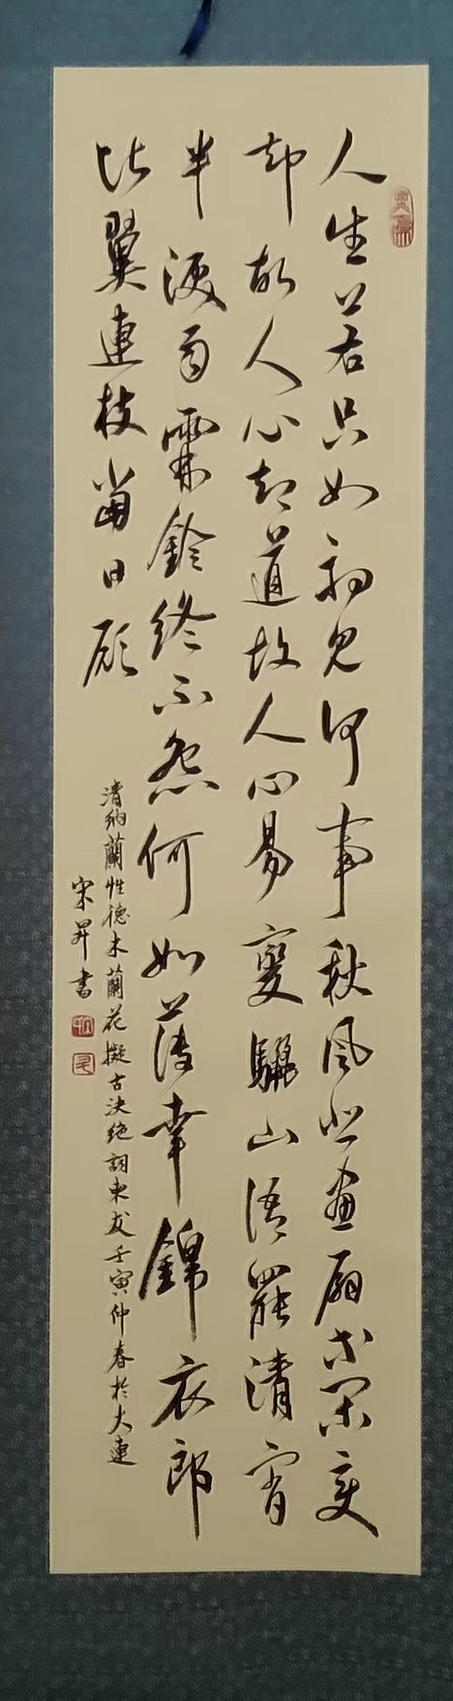 人生若只如初见何事秋风悲画扇等闲变
却故人心却道故人心易变驪山语罢清宵
半淚雨霖鈴终不怨何如薄幸錦衣郎
比翼連枝當日願
清纳蘭性德木蘭花擬古决绝詞柬友壬寅仲春於大連
宋昇書